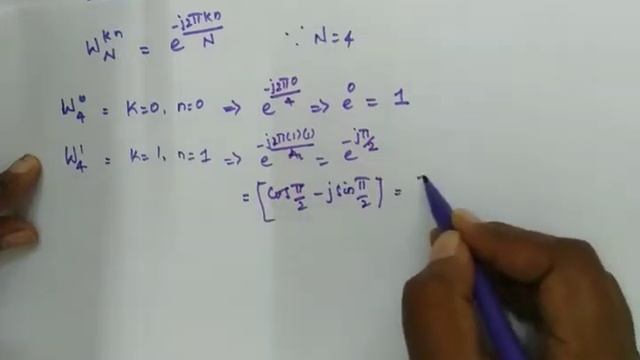 W_N^{kn} = e^{-j2πkn/N} ∵ N=4
W_4^0 = K=0, n=0 ⇒ e^{-j2π0/4} ⇒ e^0 = 1
W_4^1 = K=1, n=1 ⇒ e^{-j2π(1)(1)/4} = e^{-jπ/2}
= [cos π/2 - j sin π/2] =